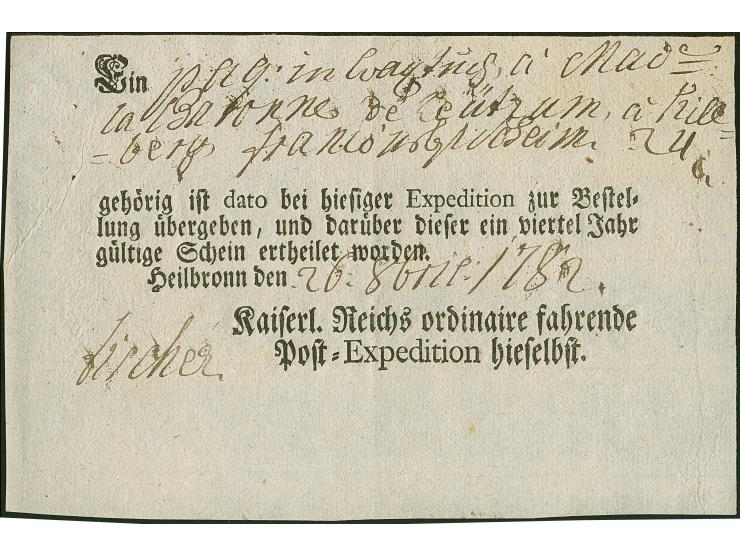 Ein pag: in à Mad=
la Baronne de à Kill=
=berg 24
gehörig ist dato bei hiesiger Expedition zur Bestel-
lung übergeben, und darüber dieser ein viertel Jahr
gültige Schein ertheilet worden.
Heilbronn den 26. 8bris: 1782.
Kaiserl. Reichs ordinaire fahrende
Post-Expedition hieselbst.